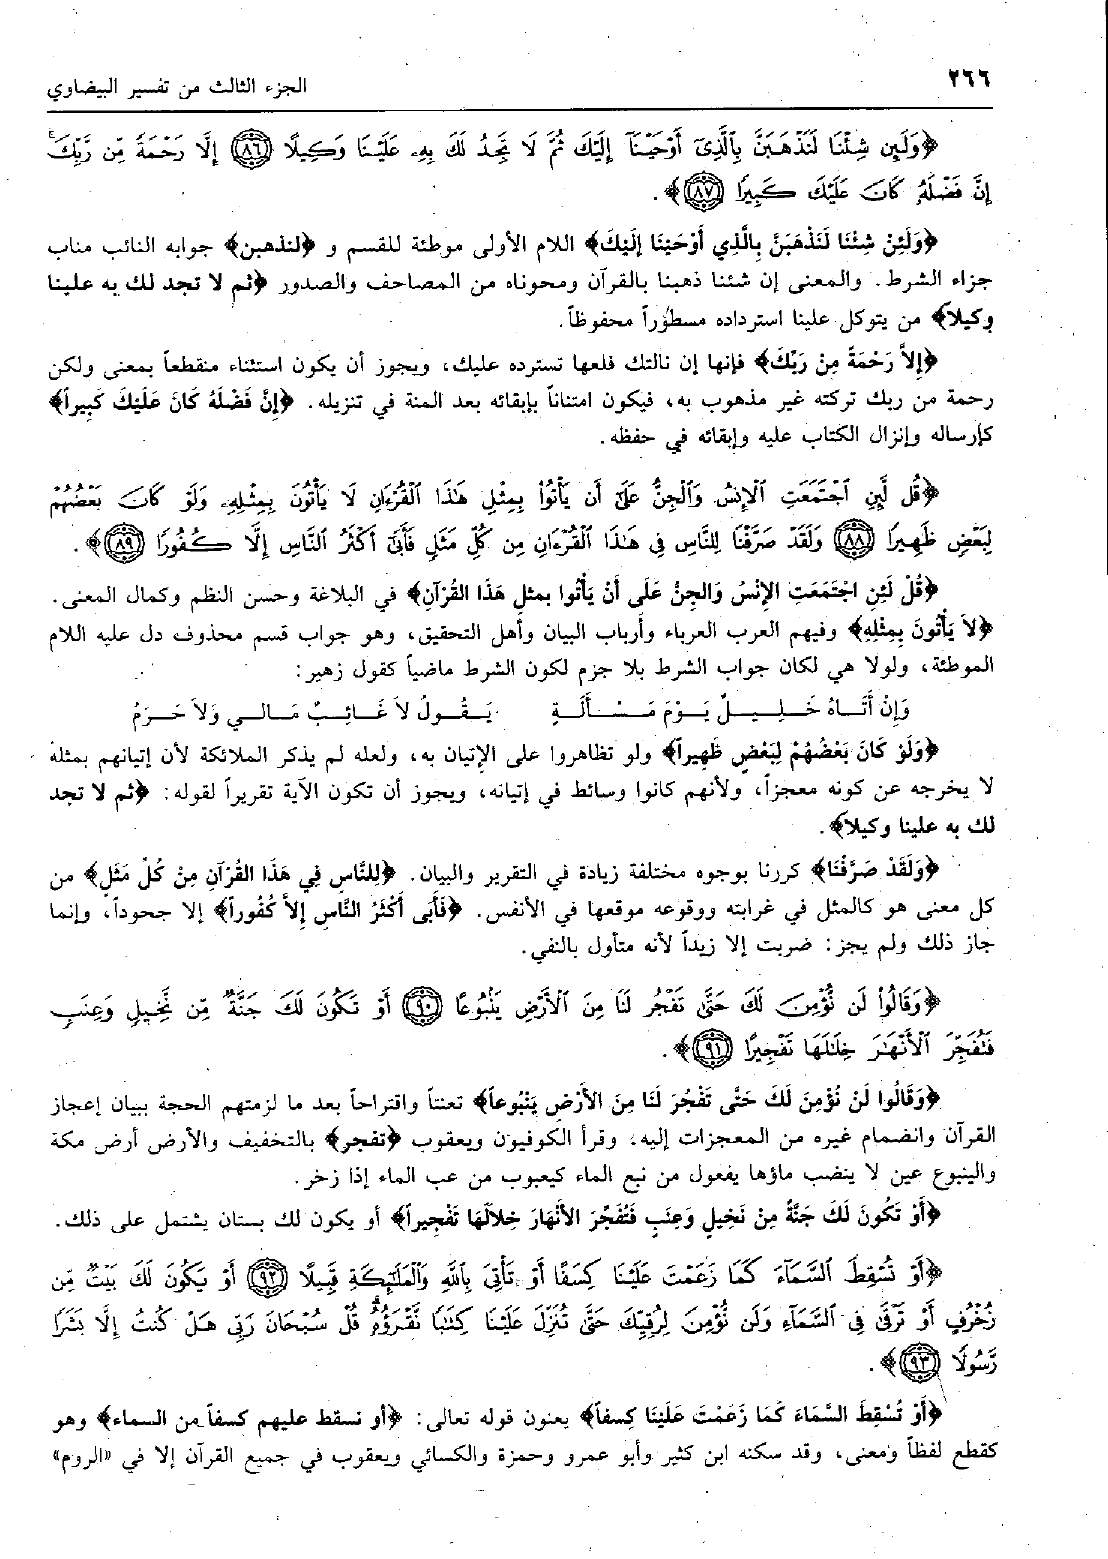 ٢٦٦ الجزء الثالث من تفسير البيضاوي
﴿وَلَئِن شِئْنَا لَنَذْهَبَنَّ بِالَّذِي أَوْحَيْنَا إِلَيْكَ ثُمَّ لَا تَجِدُ لَكَ بِهِ عَلَيْنَا وَكِيلًا ٨٦ إِلَّا رَحْمَةً مِّن رَّبِّكَ
إِنَّ فَضْلَهُ كَانَ عَلَيْكَ كَبِيرًا ٨٧﴾.
﴿وَلَئِنْ شِئْنَا لَنَذْهَبَنَّ بِالَّذِي أَوْحَيْنَا إِلَيْكَ﴾ اللام الأولى موطئة للقسم و ﴿لنذهبن﴾ جوابه النائب مناب
جزاء الشرط. والمعنى إن شئنا ذهبنا بالقرآن ومحوناه من المصاحف والصدور ﴿ثم لا تجد لك به علينا
وكيلاً﴾ من يتوكل علينا استرداده مسطوراً محفوظاً.
﴿إِلاَّ رَحْمَةً مِنْ رَبِّكَ﴾ فإنها إن نالتك فلعها تسترده عليك، ويجوز أن يكون استثناء منقطعاً بمعنى ولكن
رحمة من ربك تركته غير مذهوب به، فيكون امتناناً بإبقائه بعد المنة في تنزيله. ﴿إِنَّ فَضْلَهُ كَانَ عَلَيْكَ كَبِيراً﴾
كإرساله وإنزال الكتاب عليه وإبقائه في حفظه.
﴿قُل لَّئِنِ اجْتَمَعَتِ الْإِنسُ وَالْجِنُّ عَلَىٰ أَن يَأْتُوا بِمِثْلِ هَٰذَا الْقُرْءَانِ لَا يَأْتُونَ بِمِثْلِهِ وَلَوْ كَانَ بَعْضُهُمْ
لِبَعْضٍ ظَهِيرًا ٨٨ وَلَقَدْ صَرَّفْنَا لِلنَّاسِ فِي هَٰذَا الْقُرْءَانِ مِن كُلِّ مَثَلٍ فَأَبَىٰ أَكْثَرُ النَّاسِ إِلَّا كُفُورًا ٨٩﴾.
﴿قُلْ لَئِنِ اجْتَمَعَتِ الإِنْسُ وَالجِنُّ عَلَى أَنْ يَأْتُوا بمثلِ هَذَا القُرْآنِ﴾ في البلاغة وحسن النظم وكمال المعنى.
﴿لاَ يَأْتُونَ بِمِثْلِهِ﴾ وفيهم العرب العرباء وأرباب البيان وأهل التحقيق، وهو جواب قسم محذوف دل عليه اللام
الموطئة، ولولا هي لكان جواب الشرط بلا جزم لكون الشرط ماضياً كقول زهير:
وَإِنْ أَتَـاهُ خَـلِـيـلٌ يَـوْمَ مَـسْـأَلَـةٍ يَـقُـولُ لاَ غَـائِـبٌ مَـالـي وَلاَ حَـرَمُ
﴿وَلَوْ كَانَ بَعْضُهُمْ لِبَعْضٍ ظَهِيراً﴾ ولو تظاهروا على الإتيان به، ولعله لم يذكر الملائكة لأن إتيانهم بمثله
لا يخرجه عن كونه معجزاً، ولأنهم كانوا وسائط في إتيانه، ويجوز أن تكون الآية تقريراً لقوله: ﴿ثم لا تجد
لك به علينا وكيلاً﴾.
﴿وَلَقَدْ صَرَّفْنَا﴾ كررنا بوجوه مختلفة زيادة في التقرير والبيان. ﴿لِلنَّاسِ فِي هَذَا القُرْآنِ مِنْ كُلِّ مَثَلٍ﴾ من
كل معنى هو كالمثل في غرابته ووقوعه موقعها في الأنفس. ﴿فَأَبَى أَكْثَرُ النَّاسِ إِلاَّ كُفُوراً﴾ إلا جحوداً، وإنما
جاز ذلك ولم يجز: ضربت إلا زيداً لأنه متأول بالنفي.
﴿وَقَالُوا لَن نُّؤْمِنَ لَكَ حَتَّىٰ تَفْجُرَ لَنَا مِنَ الْأَرْضِ يَنْبُوعًا ٩٠ أَوْ تَكُونَ لَكَ جَنَّةٌ مِّن نَّخِيلٍ وَعِنَبٍ
فَتُفَجِّرَ الْأَنْهَارَ خِلَالَهَا تَفْجِيرًا ٩١﴾.
﴿وَقَالُوا لَنْ نُؤْمِنَ لَكَ حَتَّى تَفْجُرَ لَنَا مِنَ الأَرْضِ يَنْبُوعاً﴾ تعنتاً واقتراحاً بعد ما لزمتهم الحجة ببيان إعجاز
القرآن وانضمام غيره من المعجزات إليه، وقرأ الكوفيون ويعقوب ﴿تفجر﴾ بالتخفيف والأرض أرض مكة
والينبوع عين لا ينضب ماؤها يفعول من نبع الماء كيعبوب من عب الماء إذا زخر.
﴿أَوْ تَكُونَ لَكَ جَنَّةٌ مِنْ نَخِيلٍ وَعِنَبٍ فَتُفَجِّرَ الأَنْهَارَ خِلاَلَهَا تَفْجِيراً﴾ أو يكون لك بستان يشتمل على ذلك.
﴿أَوْ تُسْقِطَ السَّمَاءَ كَمَا زَعَمْتَ عَلَيْنَا كِسَفًا أَوْ تَأْتِيَ بِاللَّهِ وَالْمَلَائِكَةِ قَبِيلًا ٩٢ أَوْ يَكُونَ لَكَ بَيْتٌ مِّن
زُخْرُفٍ أَوْ تَرْقَىٰ فِي السَّمَاءِ وَلَن نُّؤْمِنَ لِرُقِيِّكَ حَتَّىٰ تُنَزِّلَ عَلَيْنَا كِتَابًا نَّقْرَؤُهُ قُلْ سُبْحَانَ رَبِّي هَلْ كُنتُ إِلَّا بَشَرًا
رَّسُولًا ٩٣﴾.
﴿أَوْ تُسْقِطَ السَّمَاءَ كَمَا زَعَمْتَ عَلَيْنَا كِسفاً﴾ يعنون قوله تعالى: ﴿أو نسقط عليهم كسفاً من السماء﴾ وهو
كقطع لفظاً ومعنى، وقد سكنه ابن كثير وأبو عمرو وحمزة والكسائي ويعقوب في جميع القرآن إلا في «الروم»